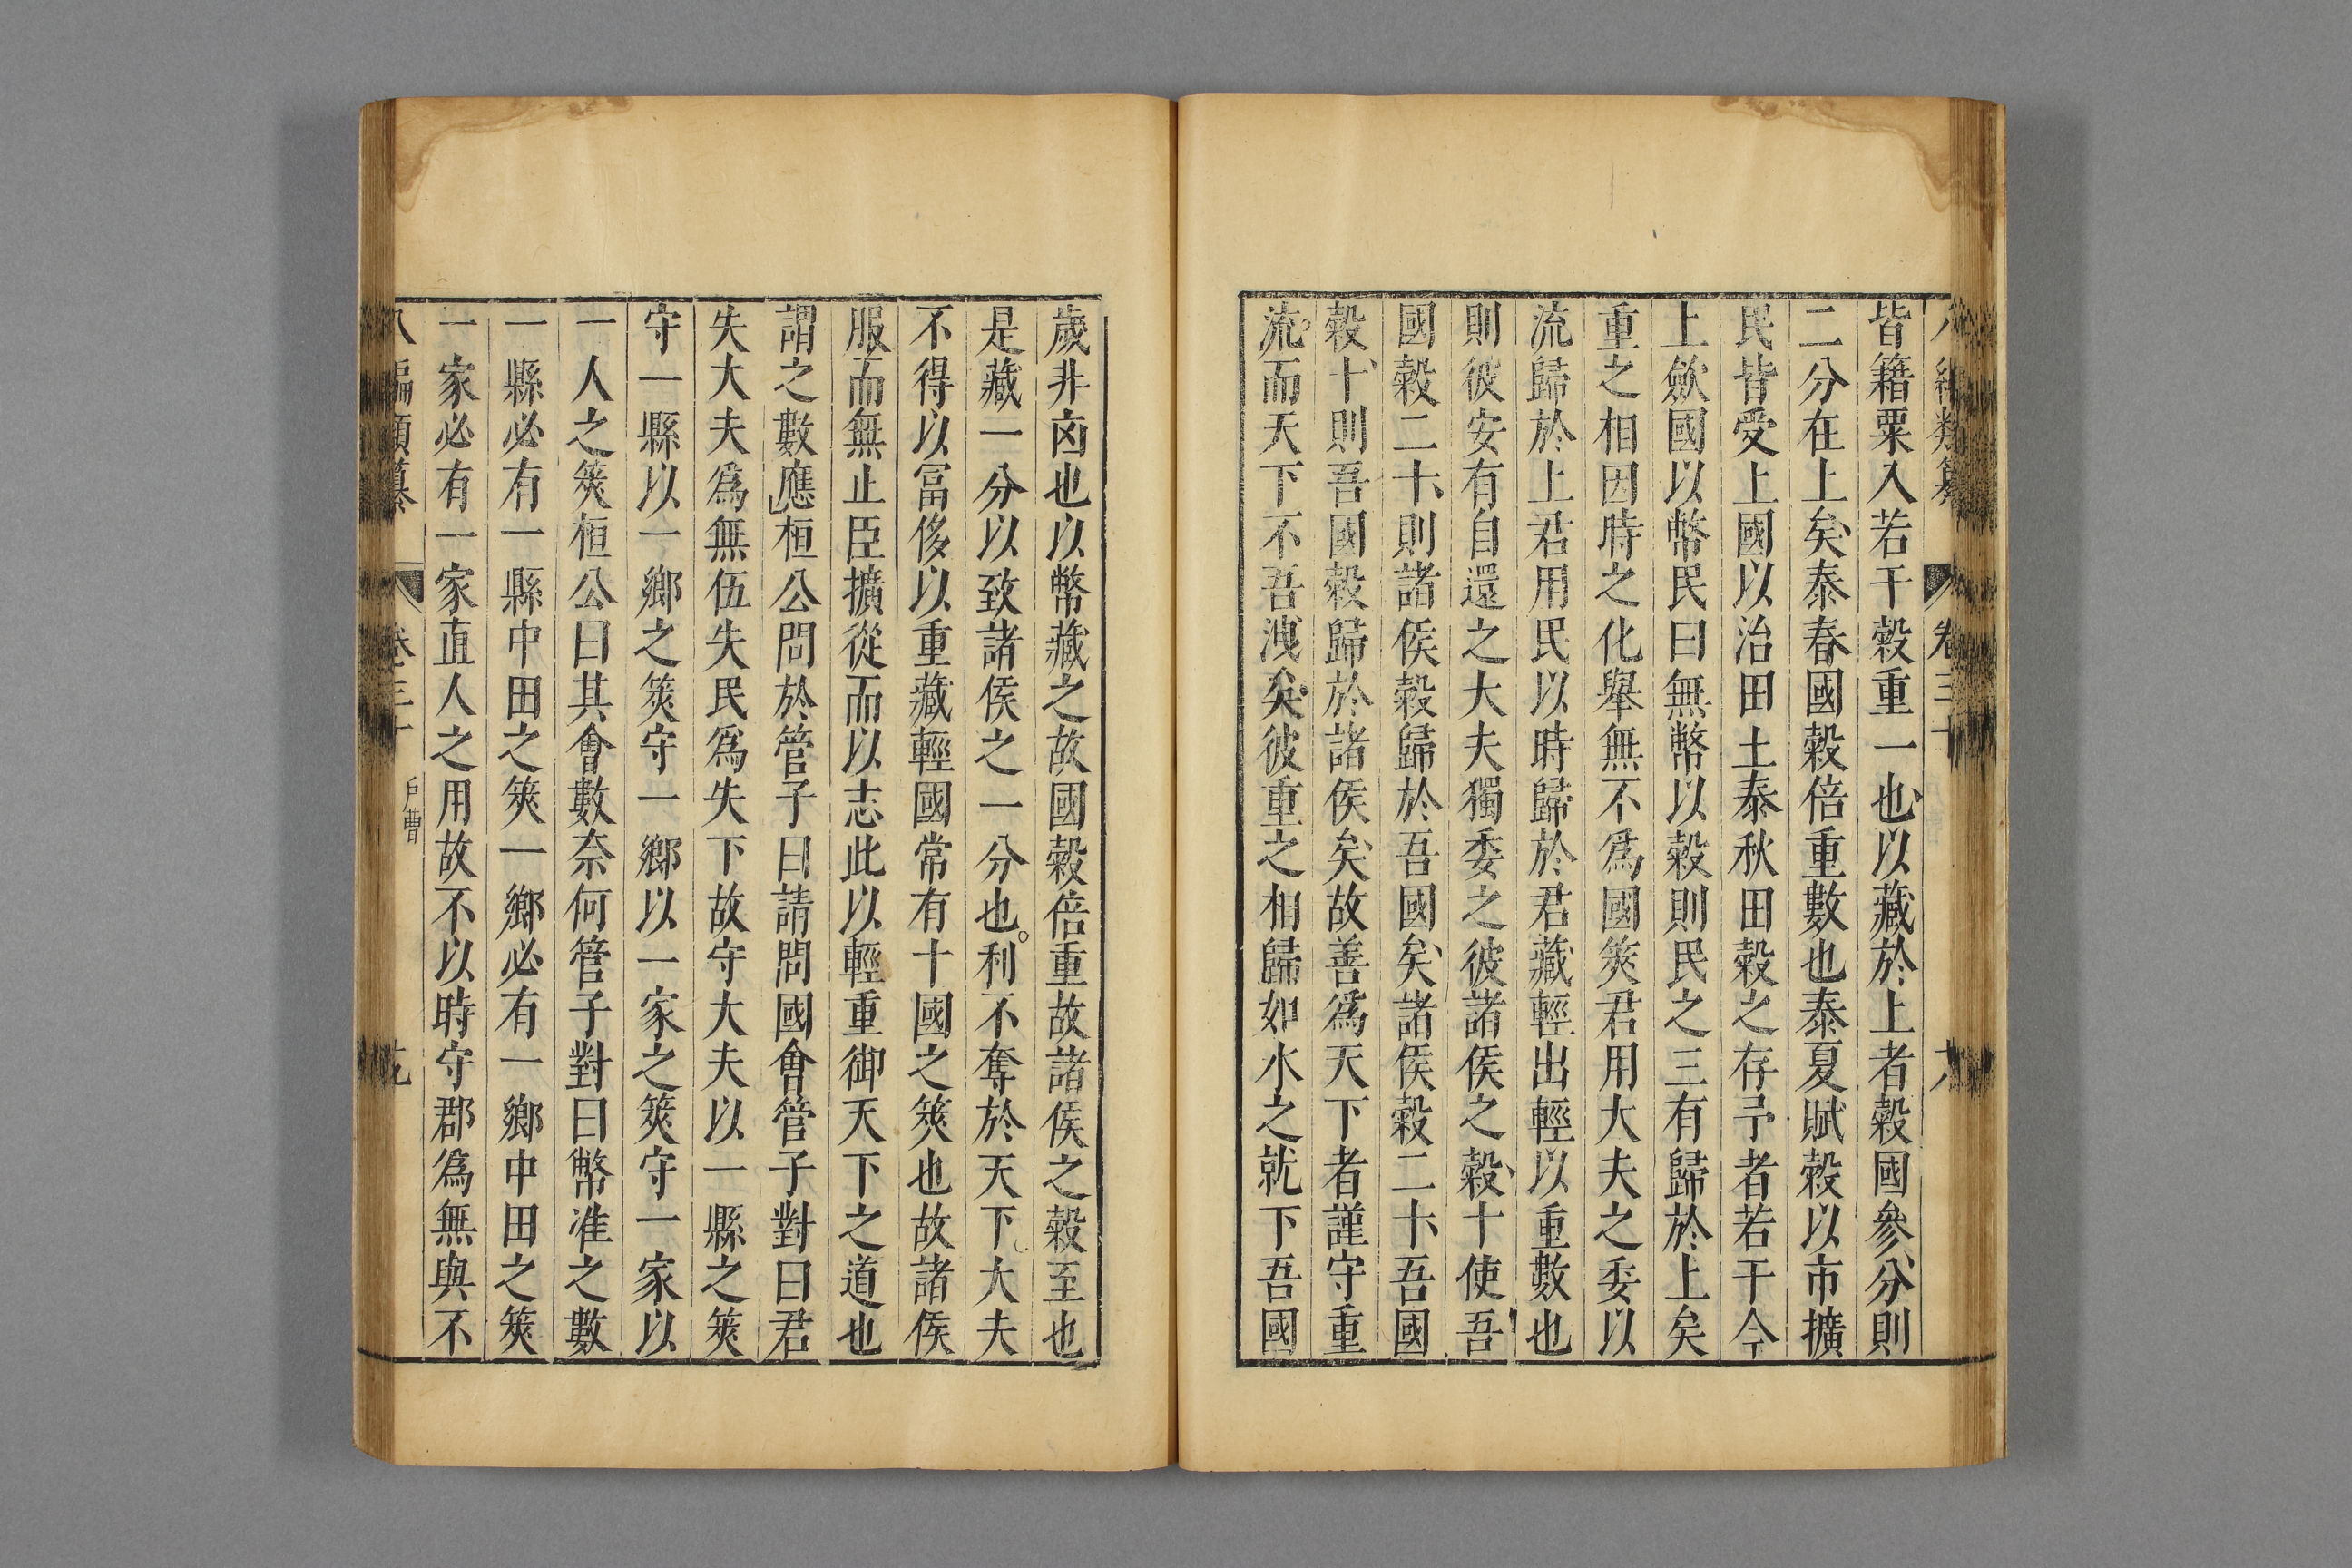 八編類纂 卷三十
皆籍粟入若干穀重一也以藏於上者穀國參分則
二分在上矣泰春國穀倍重數也泰夏賦穀以市擴
民皆受上國以治田土泰秋田穀之存予者若干今
上斂國以幣民曰無幣以穀則民之三有歸於上矣
重之相因時之化舉無不爲國筴君用大夫之委以
流歸於上君用民以時歸於君藏輕出輕以重數也
則彼安有自還之大夫獨委之彼諸侯之穀十使吾
國穀二十則諸侯穀歸於吾國矣諸侯穀二十吾國
穀十則吾國穀歸於諸侯矣故善爲天下者謹守重
流而天下不吾洩矣彼重之相歸如水之就下吾國
歲非凶也以幣藏之故國穀倍重故諸侯之穀至也
是藏一分以致諸侯之一分也利不奪於天下大夫
不得以富侈以重藏輕國常有十國之筴也故諸侯
服而無止臣擴從而以志此以輕重御天下之道也
謂之數應桓公問於管子曰請問國會管子對曰君
失大夫爲無伍失民爲失下故守大夫以一縣之筴
守一縣以一鄉之筴守一鄉以一家之筴守一家以
一人之筴桓公曰其會數奈何管子對曰幣准之數
一縣必有一縣中田之筴一鄉必有一鄉中田之筴
一家必有一家直人之用故不以時守郡爲無與不
八編類纂 卷三十 戶曹